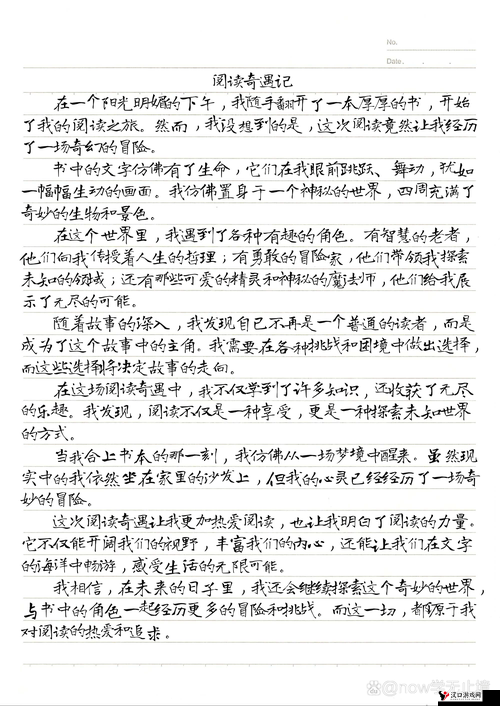 No.
Date.
阅读奇遇记
在一个阳光明媚的下午，我随手翻开了一本厚厚的书，开始
了我的阅读之旅。然而，我没想到的是，这次阅读竟然让我经历
了一场奇幻的冒险。
书中的文字仿佛有了生命，它们在我眼前跳跃、舞动，犹如
一幅幅生动的画面。我仿佛置身于一个神秘的世界，四周充满了
奇妙的生物和景色。
在这个世界里，我遇到了各种有趣的角色。有智慧的老者，
他们向我传授着人生的哲理；有勇敢的冒险家，他们带领我探索
未知的领域；还有那些可爱的精灵和神秘的魔法师，他们给我展
示了无尽的可能。
随着故事的深入，我发现自己不再是一个普通的读者，而是
成为了这个故事中的主角。我需要在各种挑战和困境中做出选择，
而这些选择将决定故事的走向。
在这场阅读奇遇中，我不仅学到了许多知识，还收获了无尽
的乐趣。我发现，阅读不仅是一种享受，更是一种探索未知世界
的方式。
当我合上书本的那一刻，我仿佛从一场梦境中醒来。虽然现
实中的我依然坐在家里的沙发上，但我的心灵已经经历了一场奇
妙的冒险。
这次阅读奇遇让我更加热爱阅读，也让我明白了阅读的力量。
它不仅能开阔我们的视野，丰富我们的内心，还能让我们在文字
的海洋中畅游，感受生活的无限可能。
我相信，在未来的日子里，我还会继续探索这个奇妙的世界，
与书中的角色一起经历更多的冒险和挑战。而这一切，都源于我
对阅读的热爱和追求。
@now学无止境
汉口游戏网